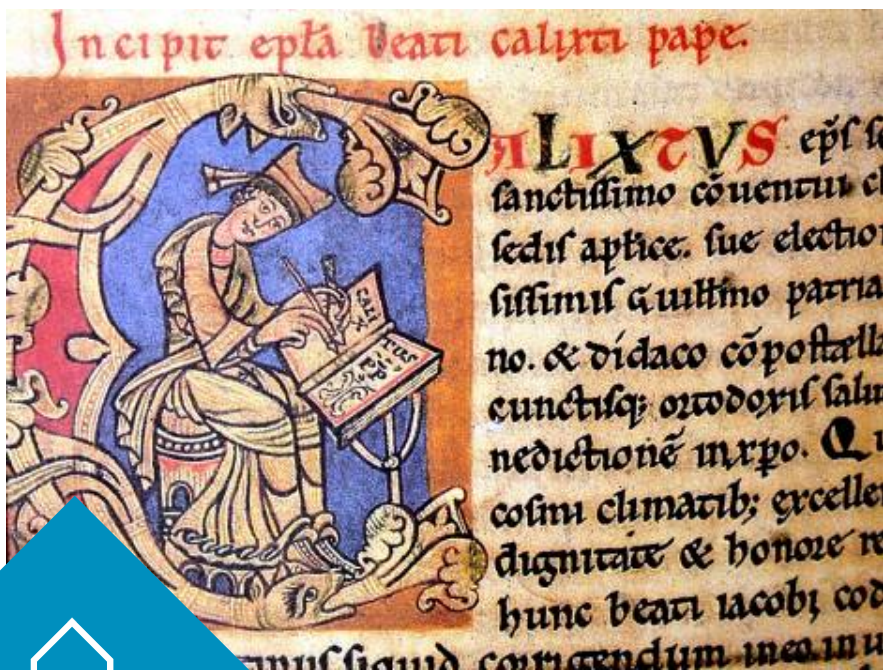 Incipit epła beati calixti pape.
CALIXTVS ep̃s se
sanctissimo cõuentui cl
sedis apłice. sue electio
sissimis Guillmo patria
no. & didaco cõpostella
cunctisq; ortodoxis salu
nedictionẽ in xpo. Qu
cosmi climatib; excelle
dignitate & honore re
hunc beati iacobi cod
siquid corrigendum in eo inu